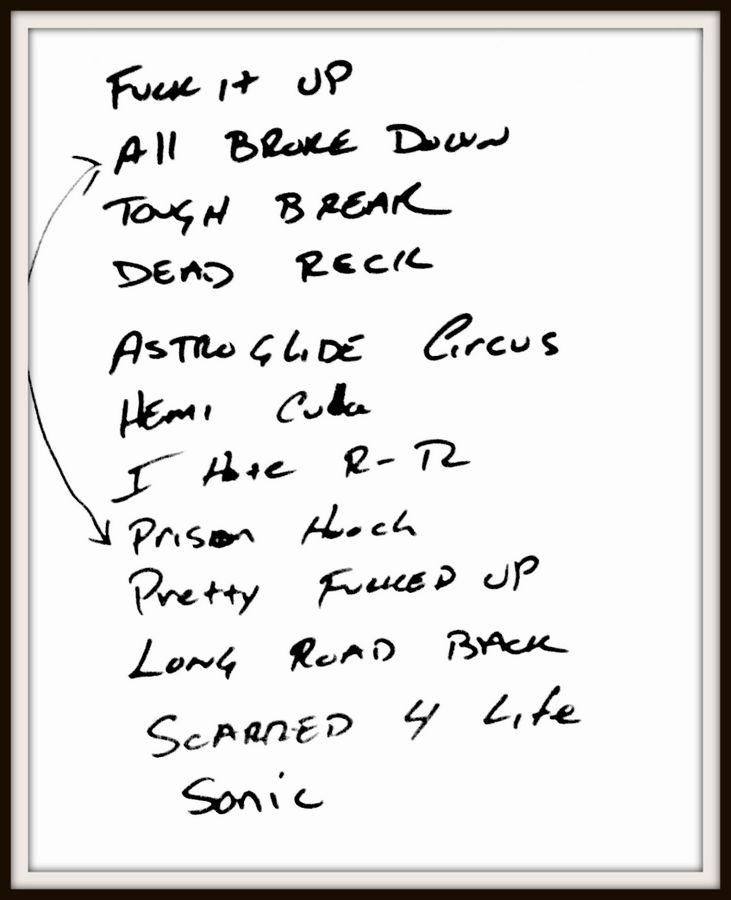 FUCK IT UP
All BROKE DOWN
TOUGH BREAK
DEAD RECK
ASTROGLIDE Circus
HEMI Cuda
I Hate R-R
Prison Hooch
Pretty FUCKED UP
LONG ROAD BACK
SCARRED 4 Life
Sonic